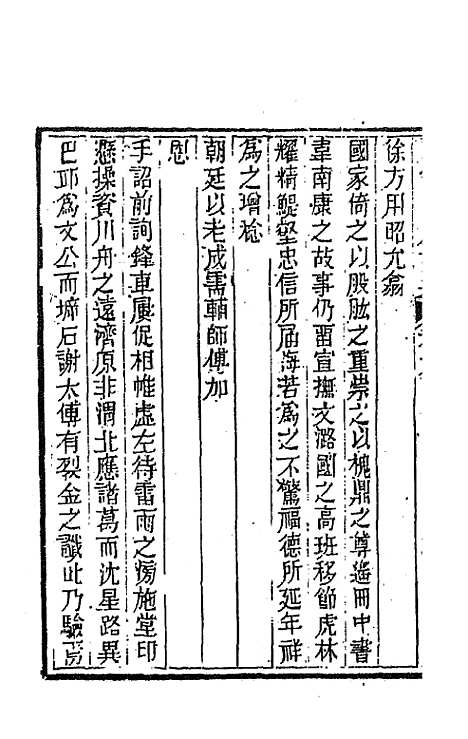 徐方用昭允翕
國家倚之以股肱之重崇之以槐鼎之尊遙冊中書
韋南康之故事仍畱宣撫文潞國之高班移節虎林
耀精鯷壑忠信所届海若為之不驚福德所延年祥
為之增稔
朝廷以老成需輔師傅加
恩
手詔前詢鋒車屢促相帷虛左待雷雨之滂施堂印
懸操資川舟之遠濟原非渭北應諧葛而沈星路異
巴邛為文公而墆石謝太傅有裂金之讖此乃驗焉